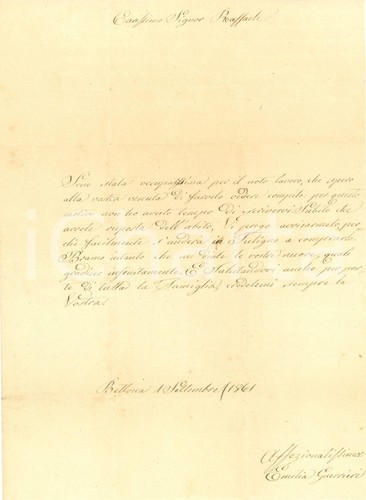 Carissimo Signor Raffaele
Sono stata occupatissima per il noto lavoro, che spero
alla vostra venuta di farvelo vedere compito, per questo
motivo non ho avuto tempo di scrivervi subito che
avrete risposta dell'abito, Vi prego avvisarmelo per
chè facilmente s'anderà in Fuligno a comprarlo.
Bramo intanto che mi diate le vostre nuove, quali
gradirò infinitamente. E salutandovi anche per par
te di tutta la Famiglia, credetemi sempre la
Vostra
Bettona 1 Settembre 1861
Affezionatissima
Emilia Guerrieri